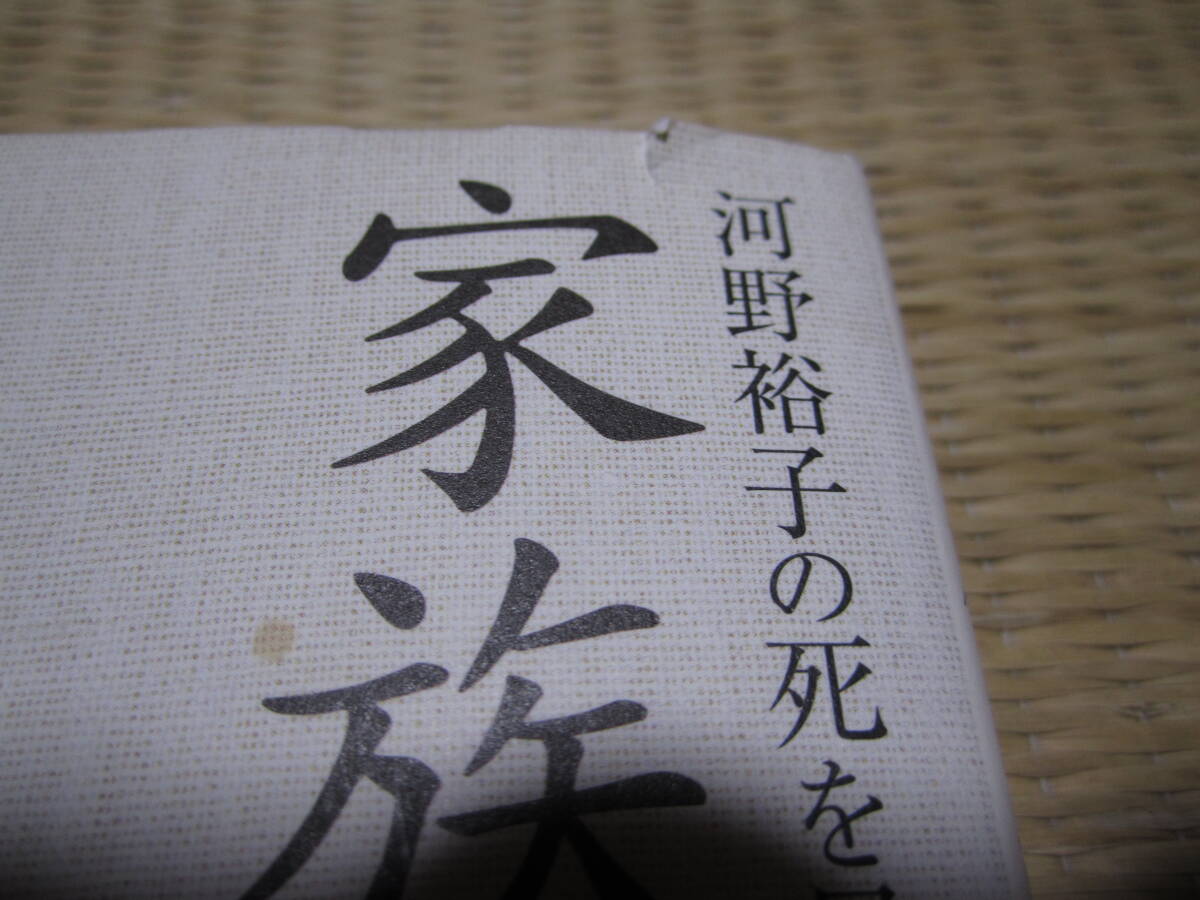 河野裕子の死を
家族